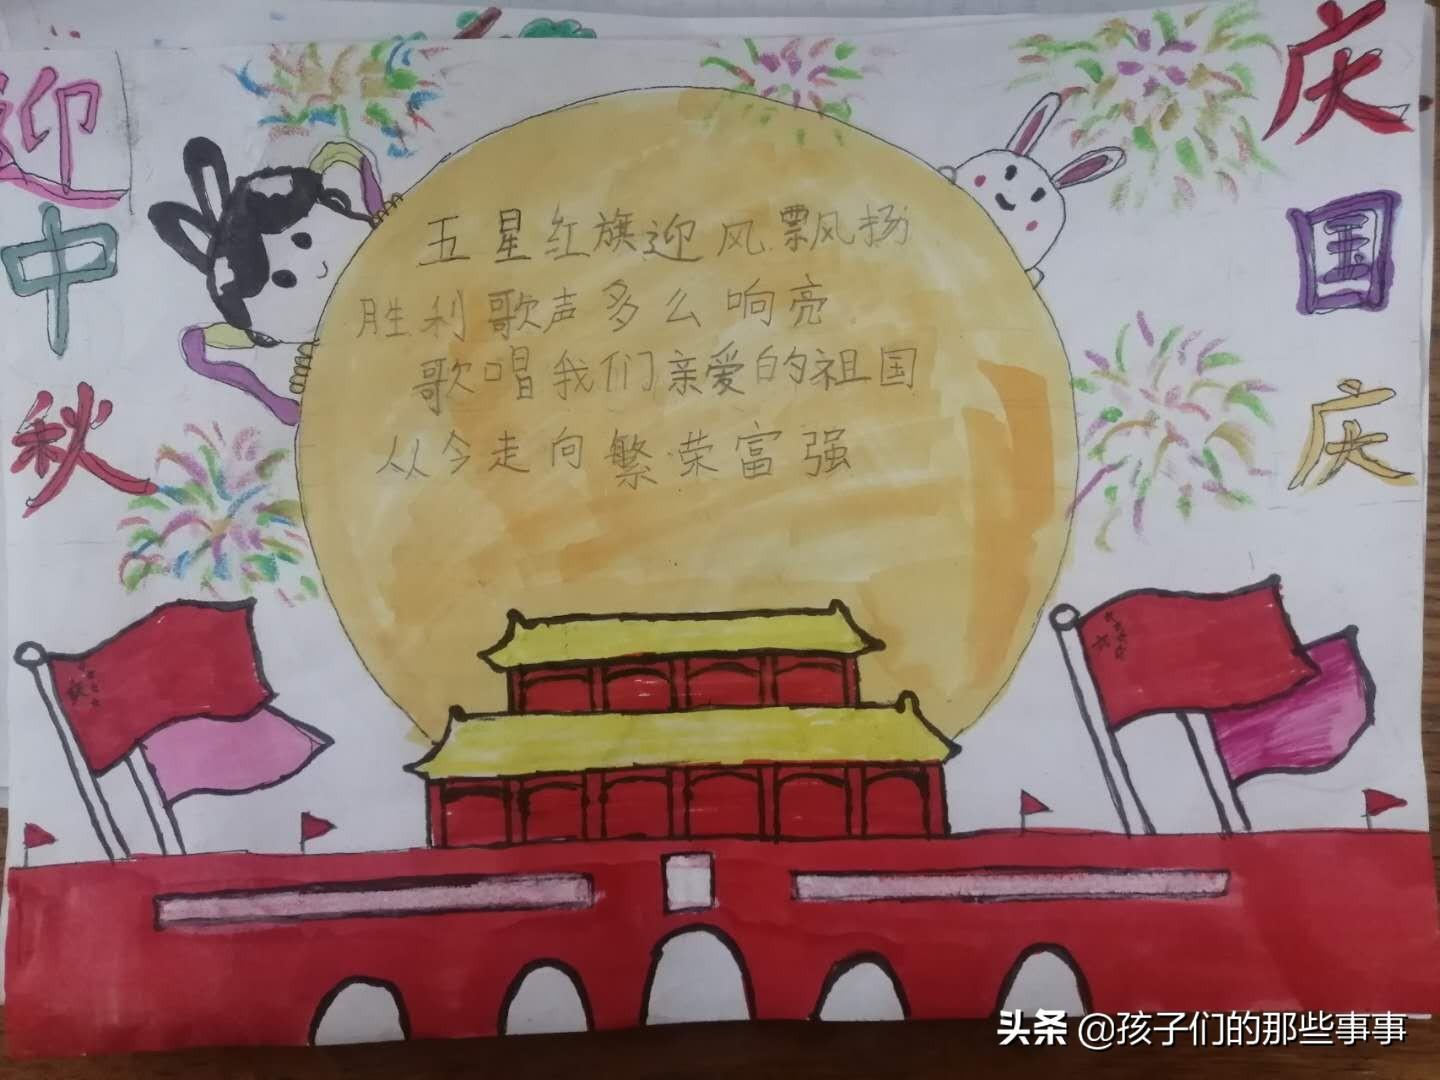 迎中秋
庆国庆
五星红旗迎风飘扬
胜利歌声多么响亮
歌唱我们亲爱的祖国
从今走向繁荣富强
头条 @孩子们的那些事事